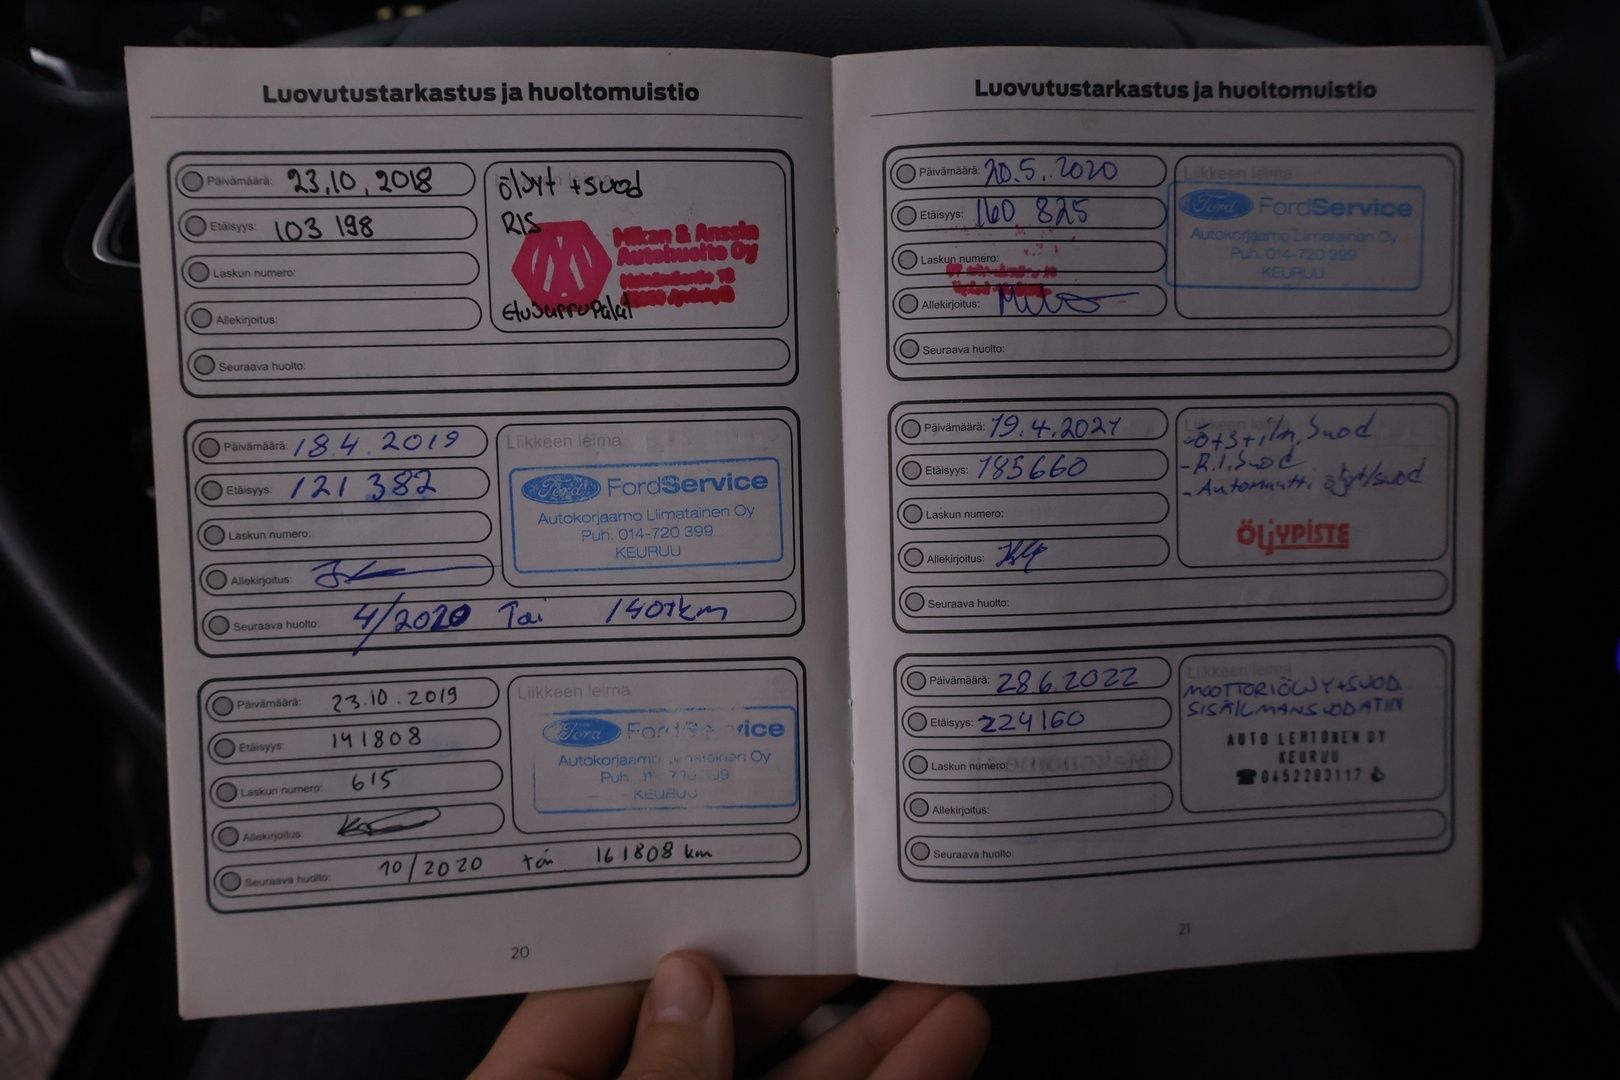 Luovutustarkastus ja huoltomuistio
Päivämäärä: 23.10.2018
Etäisyys: 103 198
Laskun numero:
Allekirjoitus:
Seuraava huolto:
öljyt + suod
RIS
Mikan & Anssin
Autohuolto Oy
Etujarrupalat
Päivämäärä: 18.4.2019
Etäisyys: 121 382
Laskun numero:
Allekirjoitus:
Seuraava huolto: 4/2020 Tai 140tkm
Liikkeen leima
Ford FordService
Autokorjaamo Liimatainen Oy
Puh. 014-720 399
KEURUU
Päivämäärä: 23.10.2019
Etäisyys: 141808
Laskun numero: 615
Allekirjoitus:
Seuraava huolto: 10/2020 tai 161808 km
Liikkeen leima
Ford FordService
Autokorjaamo Liimatainen Oy
Puh. 014-720 399
KEURUU
20
Luovutustarkastus ja huoltomuistio
Päivämäärä: 20.5.2020
Etäisyys: 160 825
Laskun numero:
Allekirjoitus:
Seuraava huolto:
Liikkeen leima
Ford FordService
Autokorjaamo Liimatainen Oy
Puh. 014-720 399
KEURUU
Päivämäärä: 19.4.2021
Etäisyys: 185660
Laskun numero:
Allekirjoitus:
Seuraava huolto:
Liikkeen leima
-ö+s+ilm.suod
- R.I.Suod
- Automaatti öljyt/suod
ÖljYPISTE
Päivämäärä: 28.6.2022
Etäisyys: 224160
Laskun numero:
Allekirjoitus:
Seuraava huolto:
Liikkeen leima
MOOTTORIÖLJY+SUOD
SISÄILMANSUODATIN
AUTO LEHTONEN OY
KEURUU
☎0452293117
21